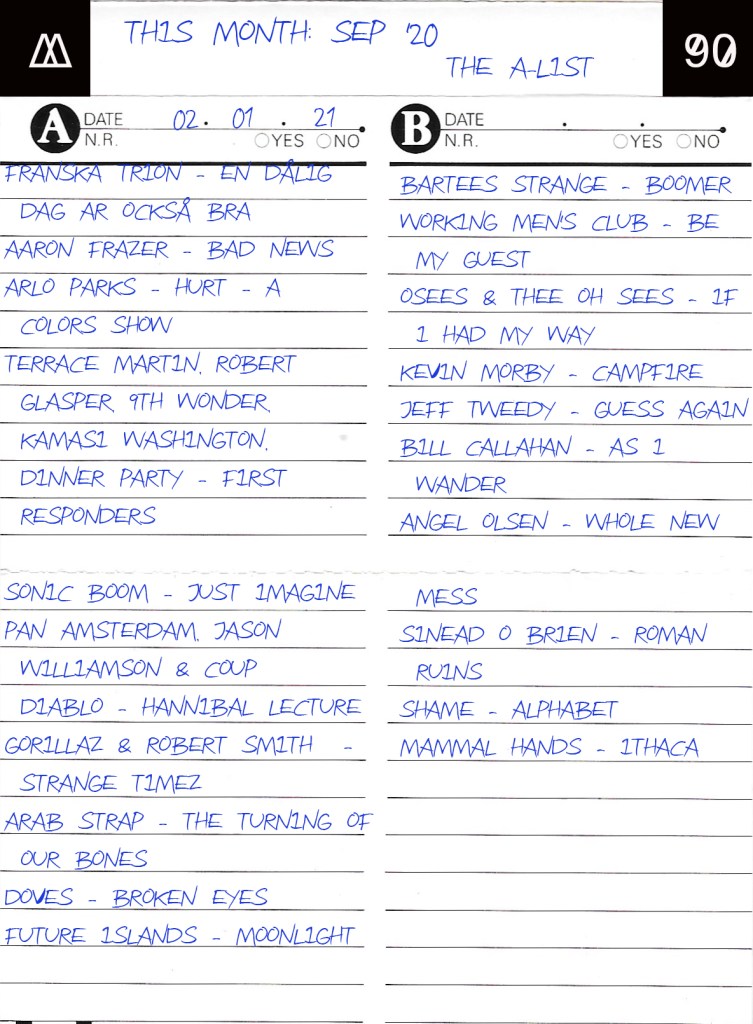 THIS MONTH: SEP '20
THE A-LIST
90
A
DATE 02. 01. 21
N.R. YES NO
FRANSKA TRION - EN DÅLIG
DAG AR OCKSÅ BRA
AARON FRAZER - BAD NEWS
ARLO PARKS - HURT - A
COLORS SHOW
TERRACE MARTIN, ROBERT
GLASPER, 9TH WONDER,
KAMASI WASHINGTON,
DINNER PARTY - FIRST
RESPONDERS
SONIC BOOM - JUST IMAGINE
PAN AMSTERDAM, JASON
WILLIAMSON & COUP
DIABLO - HANNIBAL LECTURE
GORILLAZ & ROBERT SMITH -
STRANGE TIMEZ
ARAB STRAP - THE TURNING OF
OUR BONES
DOVES - BROKEN EYES
FUTURE ISLANDS - MOONLIGHT
B
DATE . .
N.R. YES NO
BARTEES STRANGE - BOOMER
WORKING MEN'S CLUB - BE
MY GUEST
OSEES & THEE OH SEES - IF
I HAD MY WAY
KEVIN MORBY - CAMPFIRE
JEFF TWEEDY - GUESS AGAIN
BILL CALLAHAN - AS I
WANDER
ANGEL OLSEN - WHOLE NEW
MESS
SINEAD O BRIEN - ROMAN
RUINS
SHAME - ALPHABET
MAMMAL HANDS - ITHACA